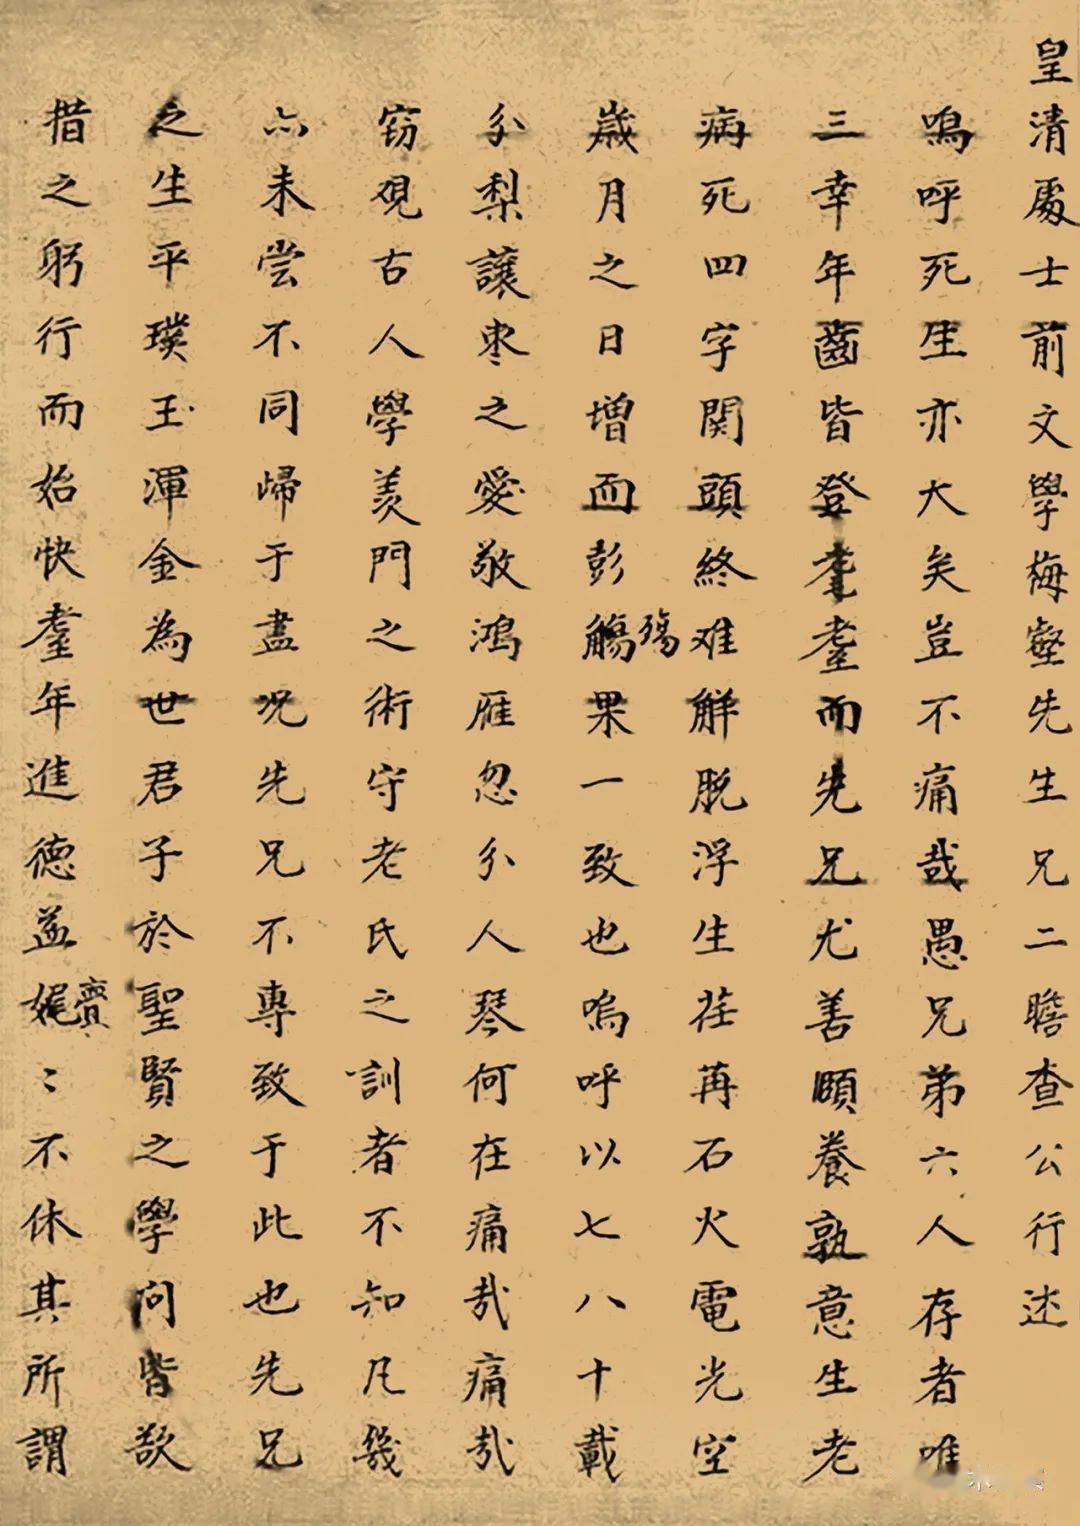 皇清處士前文學梅壑先生兄二瞻查公行述
鳴呼死生亦大矣豈不痛哉愚兄弟六人存者唯
三幸年齒皆登耄耋而先兄尤善頤養孰意生老
病死四字関頭終难解脫浮生荏苒石火電光空
歲月之日增而彭觴殤果一致也嗚呼以七八十載
分梨讓棗之愛敬鴻雁忽分人琴何在痛哉痛哉
窃观古人學羡門之術守老氏之訓者不知凡幾
亦未尝不同歸于盡况先兄不專致于此也先兄
之生平璞玉渾金為世君子於聖賢之學問皆欲
措之躬行而始快耋年進德益娓亹〻不休其所謂